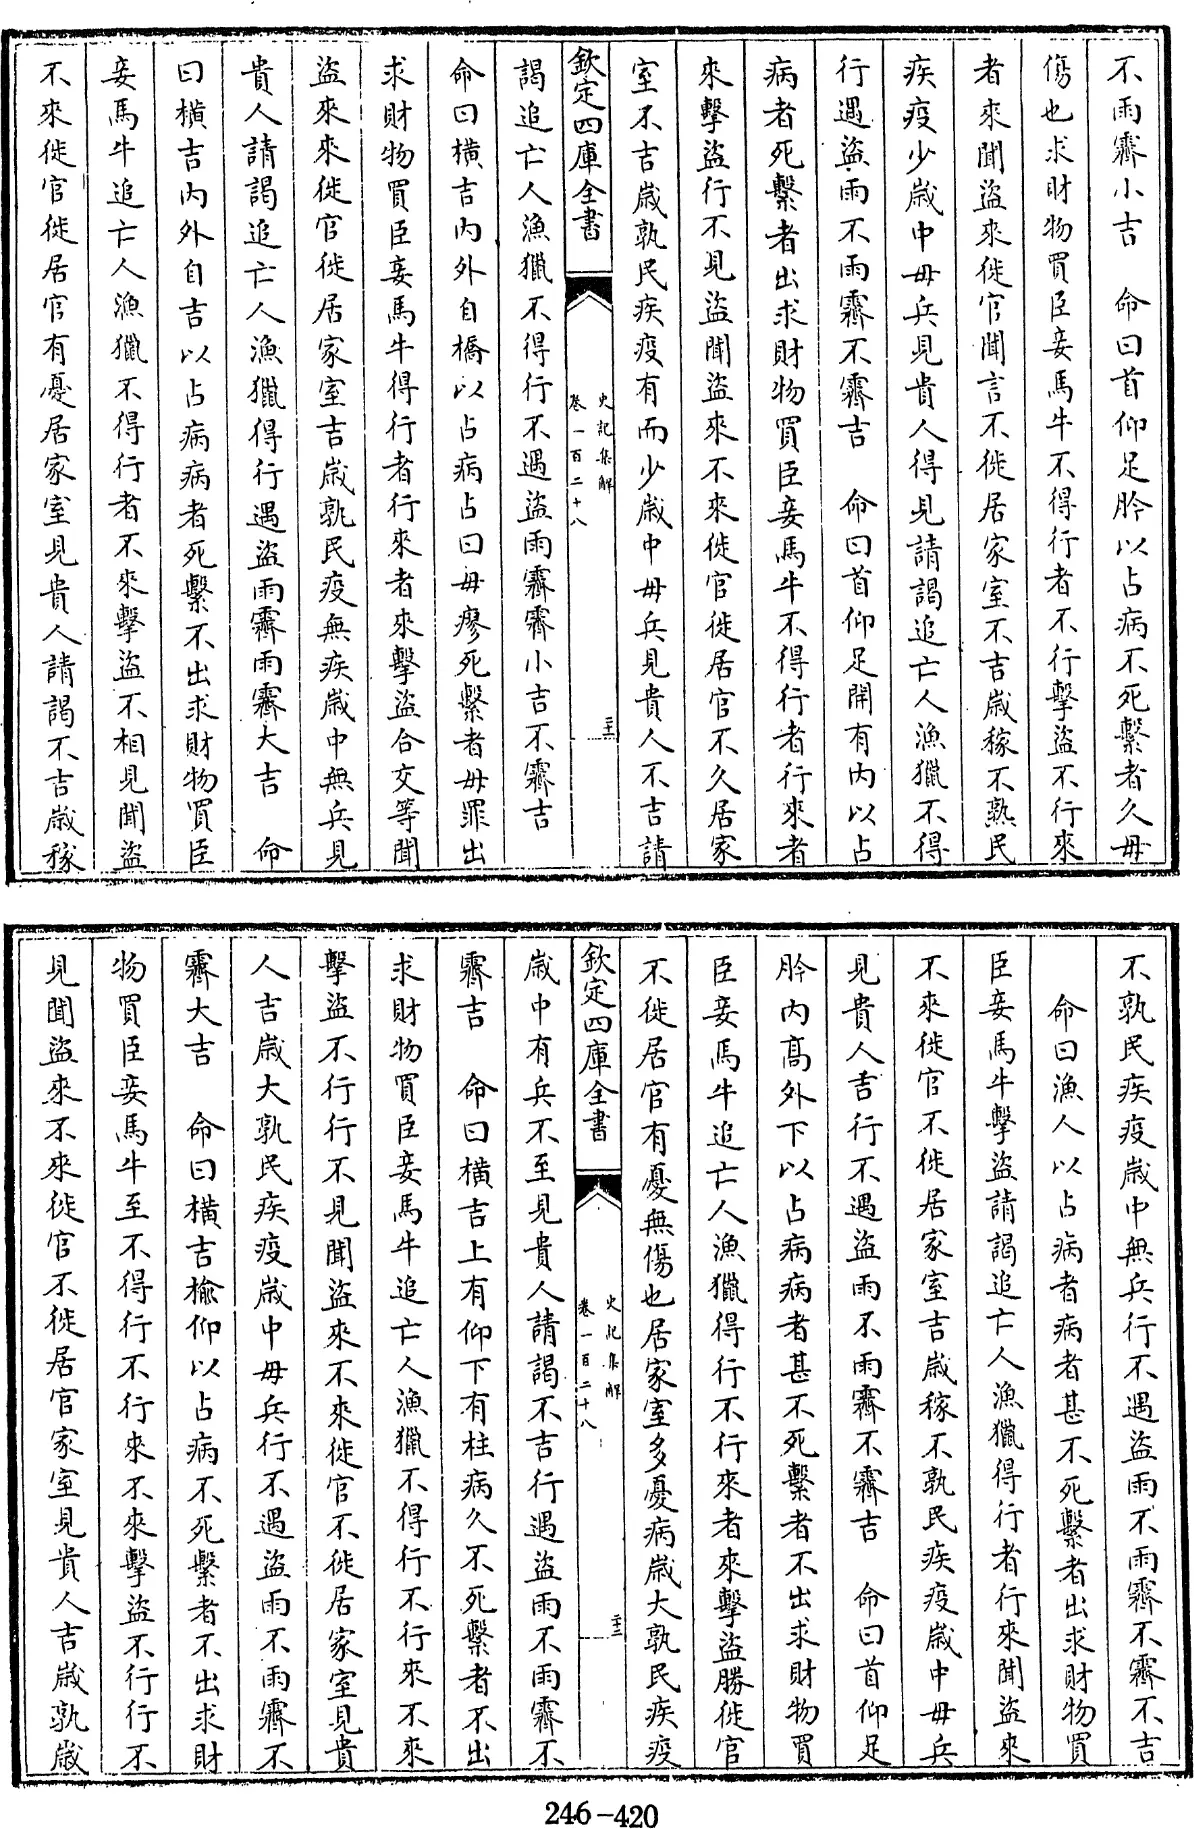 不雨霽小吉　命曰首仰足肣以占病不死繫者久毋
傷也求財物買臣妾馬牛不得行者不行擊盜不行來
者來聞盜來徙官聞言不徙居家室不吉嵗稼不熟民
疾疫少嵗中毋兵見貴人得見請謁追亡人漁獵不得
行遇盜雨不雨霽不霽吉　命曰首仰足開有内以占
病者死繫者出求財物買臣妾馬牛不得行者行來者
來擊盜行不見盜聞盜來不來徙官徙居官不久居家
室不吉嵗孰民疾疫有而少嵗中毋兵見貴人不吉請
欽定四庫全書
史記集解
卷一百二十八
二十二
謁追亡人漁獵不得行不遇盜雨霽霽小吉不霽吉
命曰橫吉内外自橋以占病占曰毋瘳死繫者毋罪出
求財物買臣妾馬牛得行者行來者來擊盜合交等聞
盜來來徙官徙居家室吉嵗孰民疫無疾嵗中無兵見
貴人請謁追亡人漁獵得行遇盜雨霽雨霽大吉　命
曰橫吉内外自吉以占病病者死繫不出求財物買臣
妾馬牛追亡人漁獵不得行者不來擊盜不相見聞盜
不來徙官徙居官有憂居家室見貴人請謁不吉嵗稼
不孰民疾疫嵗中無兵行不遇盜雨不雨霽不霽不吉
命曰漁人以占病者病者甚不死繫者出求財物買
臣妾馬牛擊盜請謁追亡人漁獵得行者行來聞盜來
不來徙官不徙居家室吉嵗稼不孰民疾疫嵗中毋兵
見貴人吉行不遇盜雨不雨霽不霽吉　命曰首仰足
肣内髙外下以占病病者甚不死繫者不出求財物買
臣妾馬牛追亡人漁獵得行不行來者來擊盜勝徙官
不徙居官有憂無傷也居家室多憂病嵗大孰民疾疫
欽定四庫全書
史記集解
卷一百二十八
二十三
嵗中有兵不至見貴人請謁不吉行遇盜雨不雨霽不
霽吉　命曰橫吉上有仰下有柱病久不死繫者不出
求財物買臣妾馬牛追亡人漁獵不得行不行來不來
擊盜不行行不見聞盜來不來徙官不徙居家室見貴
人吉嵗大孰民疾疫嵗中毋兵行不遇盜雨不雨霽不
霽大吉　命曰橫吉榆仰以占病不死繫者不出求財
物買臣妾馬牛至不得行不行來不來擊盜不行行不
見聞盜來不來徙官不徙居官家室見貴人吉嵗孰嵗
246-420